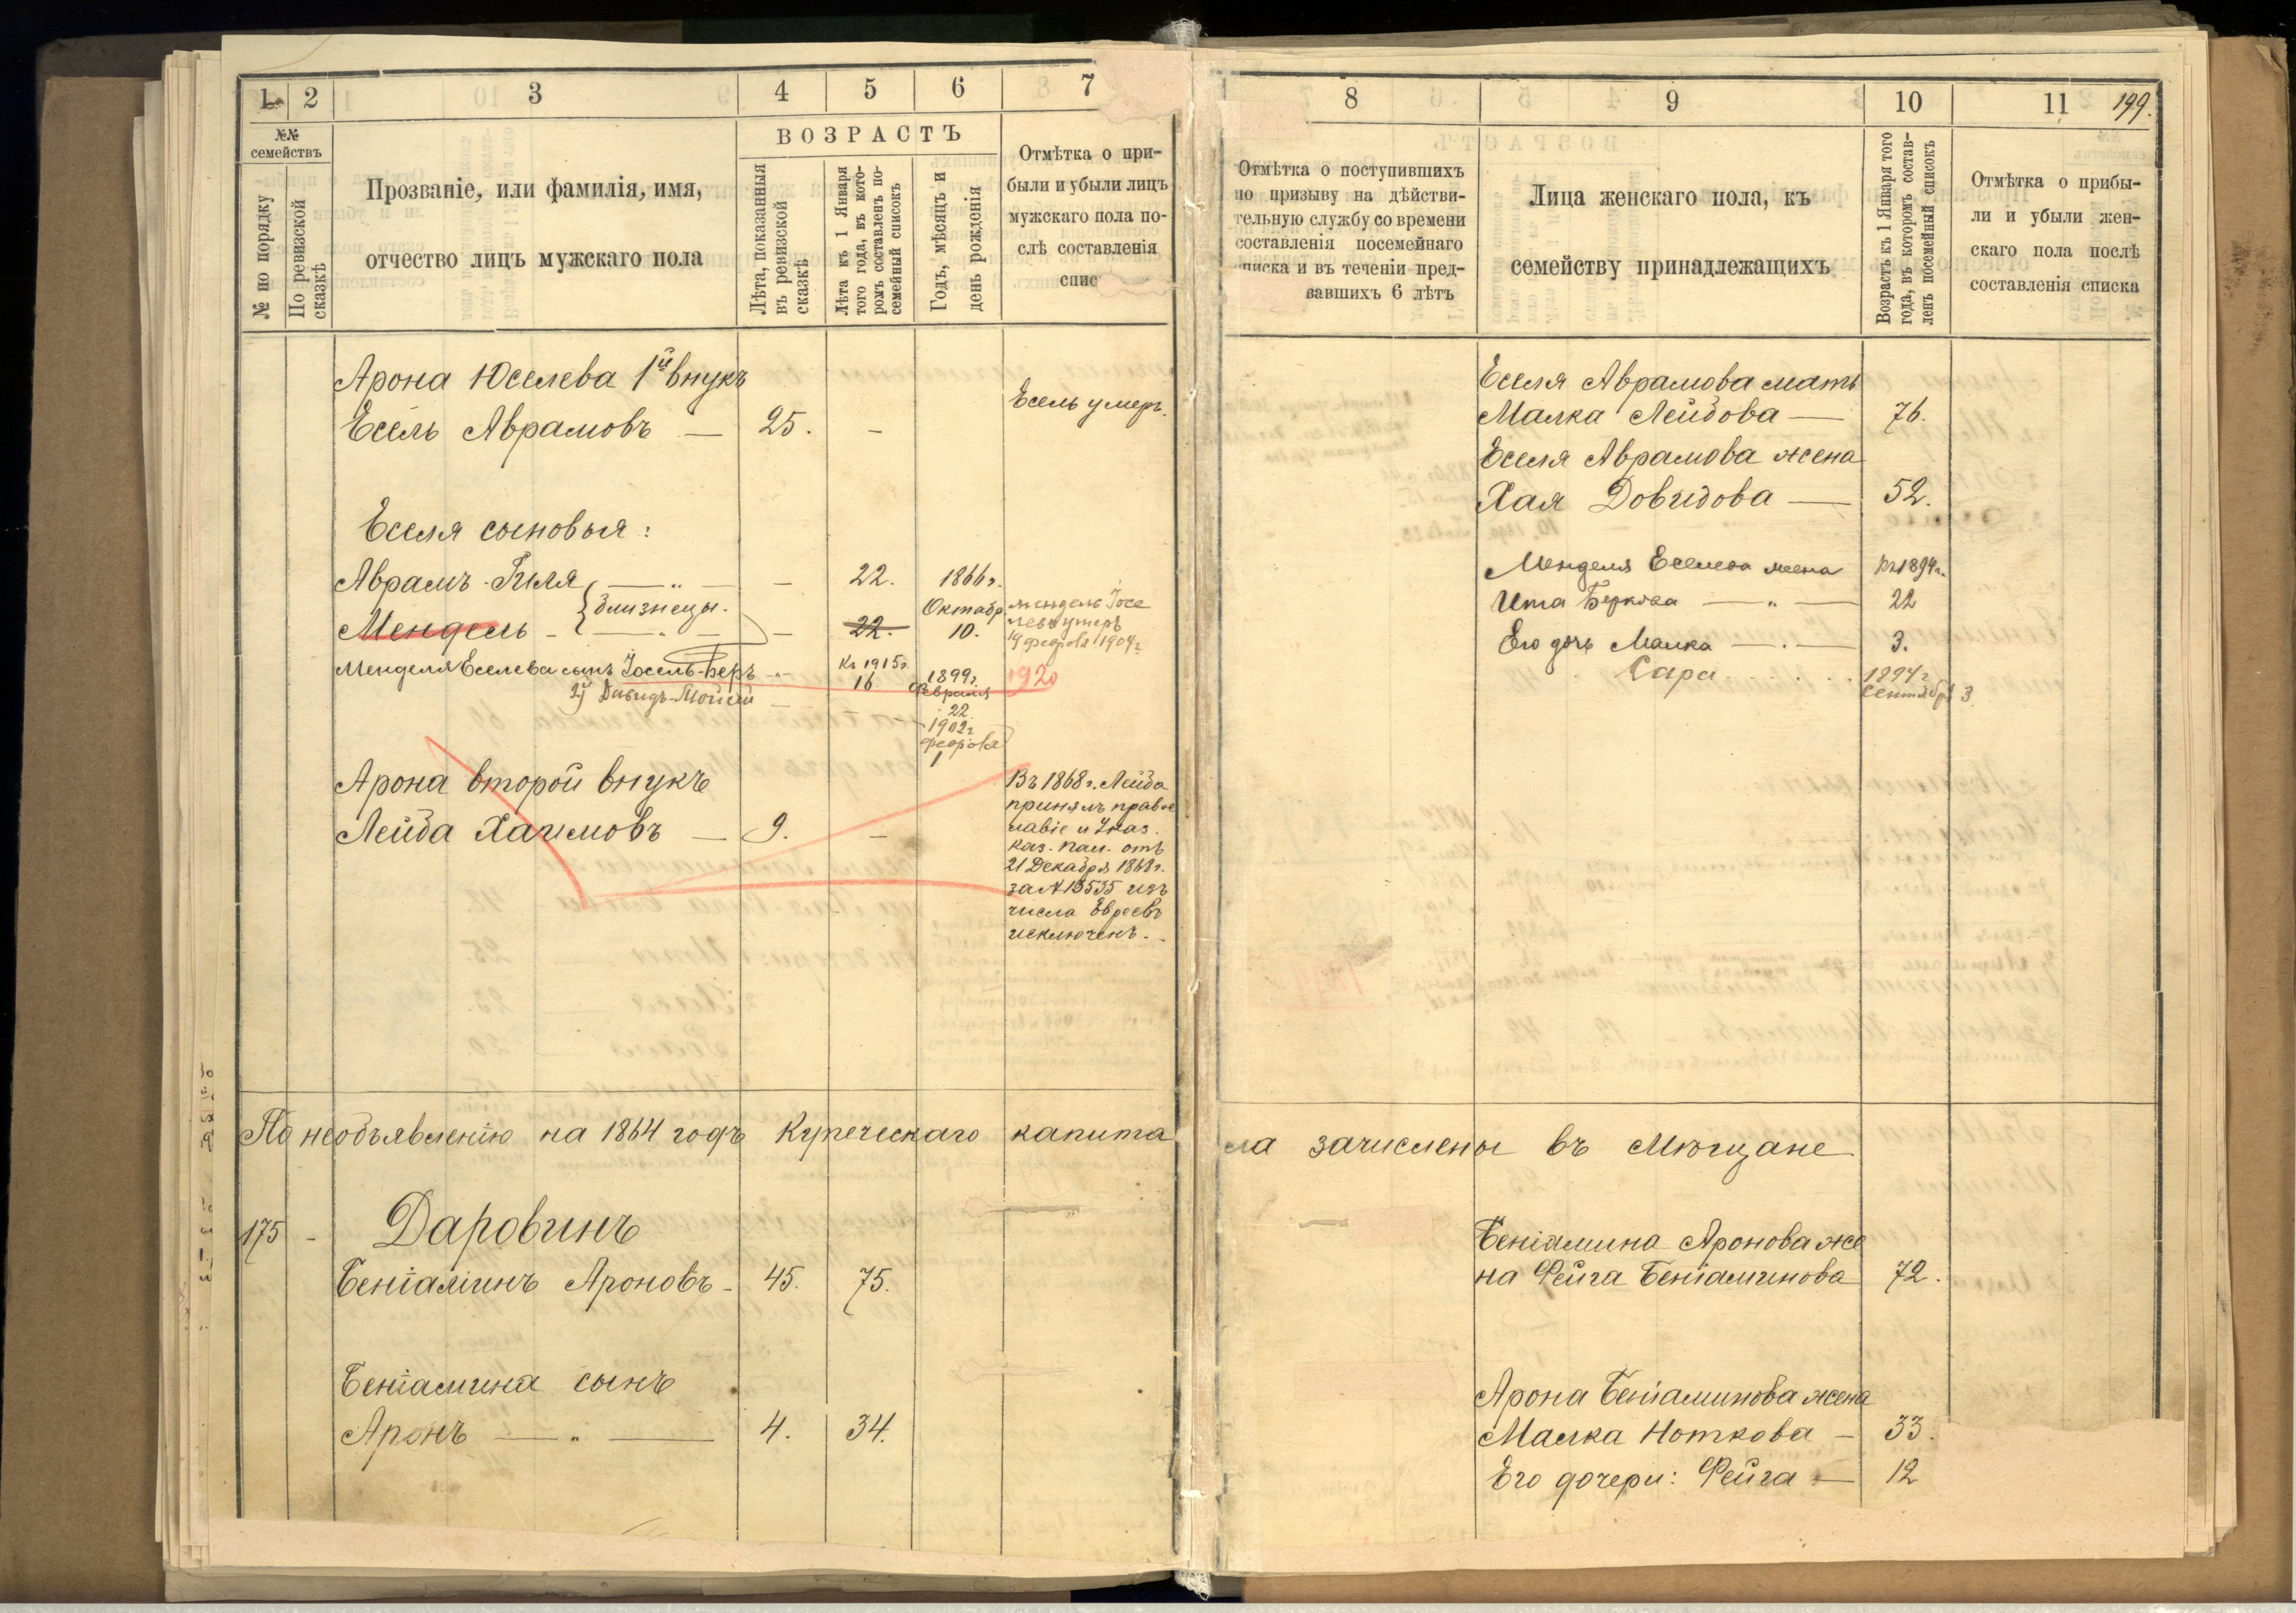 1 2 3 4 5 6 7
№№ семействъ
№ по порядку
По ревизской сказкѣ
Прозваніе, или фамилія, имя,
отчество лицъ мужскаго пола
ВОЗРАСТЪ
Лѣта, показанныя
въ ревизской
сказкѣ
Лѣта къ 1 Января
того года, въ кото-
ромъ составленъ по-
семейный списокъ
Годъ, мѣсяцъ и
день рожденія
Отмѣтка о при-
были и убыли лицъ
мужскаго пола по-
слѣ составленія
спис
Арона Юселева 1й внукъ
Есель Аврамовъ — 25. —
Есель умеръ.
Еселя сыновья:
Аврамъ-Гиля — „ — — 22. 1866 г.
близнецы. Октябр.
Мендель — „ — — 22. 10.
Мендель Іосе
левъ умеръ
19 февраля 1904 г
Менделя Еселева сынъ Іосель-Беръ — Къ 1915 г. 16 1899 г. Февраля 22 1920
2й Давидъ-Мойсей — 1902 г февраля 1
Арона второй внукъ
Лейба Хаимовъ — 9. —
Въ 1868 г. Лейба
принялъ правос
лавіе и Указ.
каз. пал. отъ
21 Декабря 1868 г.
за № 13535 изъ
числа Евреевъ
исключенъ.
По необъявленію на 1864 годъ купеческаго капита
175 - Даровинъ
Беніаминъ Ароновъ - 45. 75.
Беніамина сынъ
Аронъ — „ — 4. 34.
8 9 10 11 199.
Отмѣтка о поступившихъ
по призыву на дѣйстви-
тельную службу со времени
составленія посемейнаго
писка и въ теченіи пред-
вавшихъ 6 лѣтъ
Лица женскаго пола, къ
семейству принадлежащихъ
Возрастъ къ 1 Января того
года, въ которомъ состав-
ленъ посемейный списокъ
Отмѣтка о прибы-
ли и убыли жен-
скаго пола послѣ
составленія списка
Еселя Аврамова мать
Малка Лейбова — 76.
Еселя Аврамова жена
Хая Довидова — 52.
Менделя Еселева жена Къ 1894 г.
Ита Беркова — „ — 22
Его дочь Малка — . — 3.
Сара 1894 г
Сентября 3
ла зачислены въ Мѣщане
Беніамина Аронова же
на Фейга Беніаминова 72.
Арона Беніаминова жена
МалкаНоткова — 33.
Его дочери: Фейга — 12